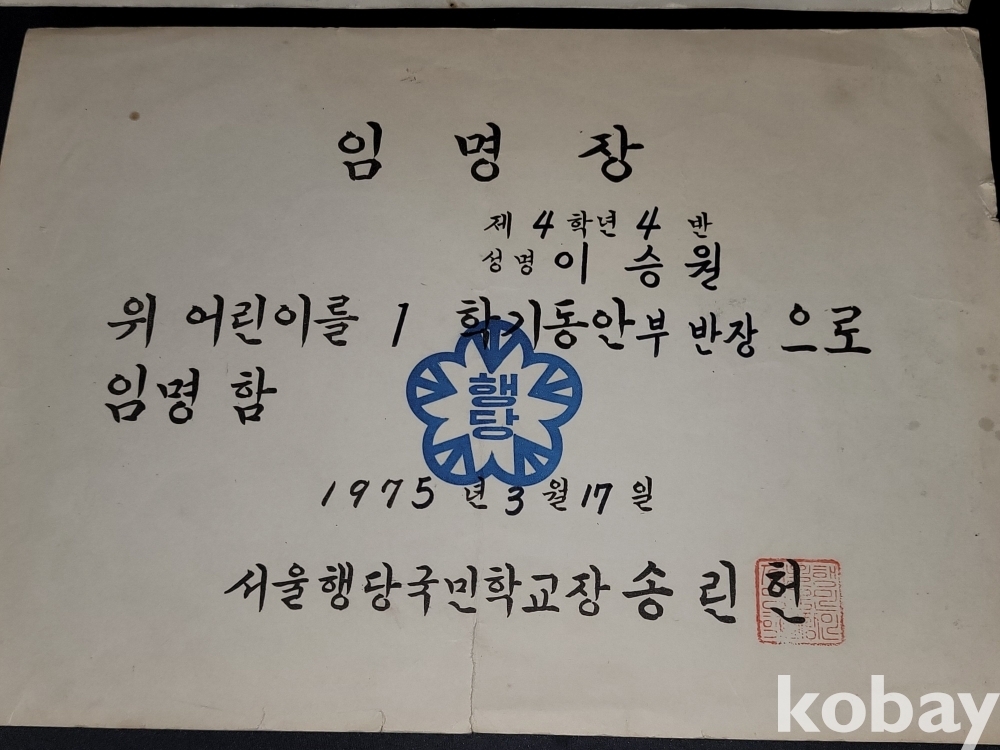 임명장
제 4 학년 4 반
성명 이 승 원
위 어린이를 1 학기동안 부 반장 으로
임명 함
행당
1975 년 3 월 17 일
서울행당국민학교장 송 린 헌
kobay